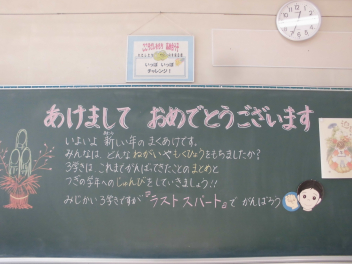 いっぽ いっぽ
チャレンジ！
あけまして おめでとうございます
いよいよ 新しい年の まくあけです。
みんなは、どんな ねがいや もくひょうをもちましたか？
3学きは これまでがんばってきたことの まとめと
つぎの学年への じゅんびをしていきましょう!!
みじかい3学きですが "ラスト スパート" で がんばろう